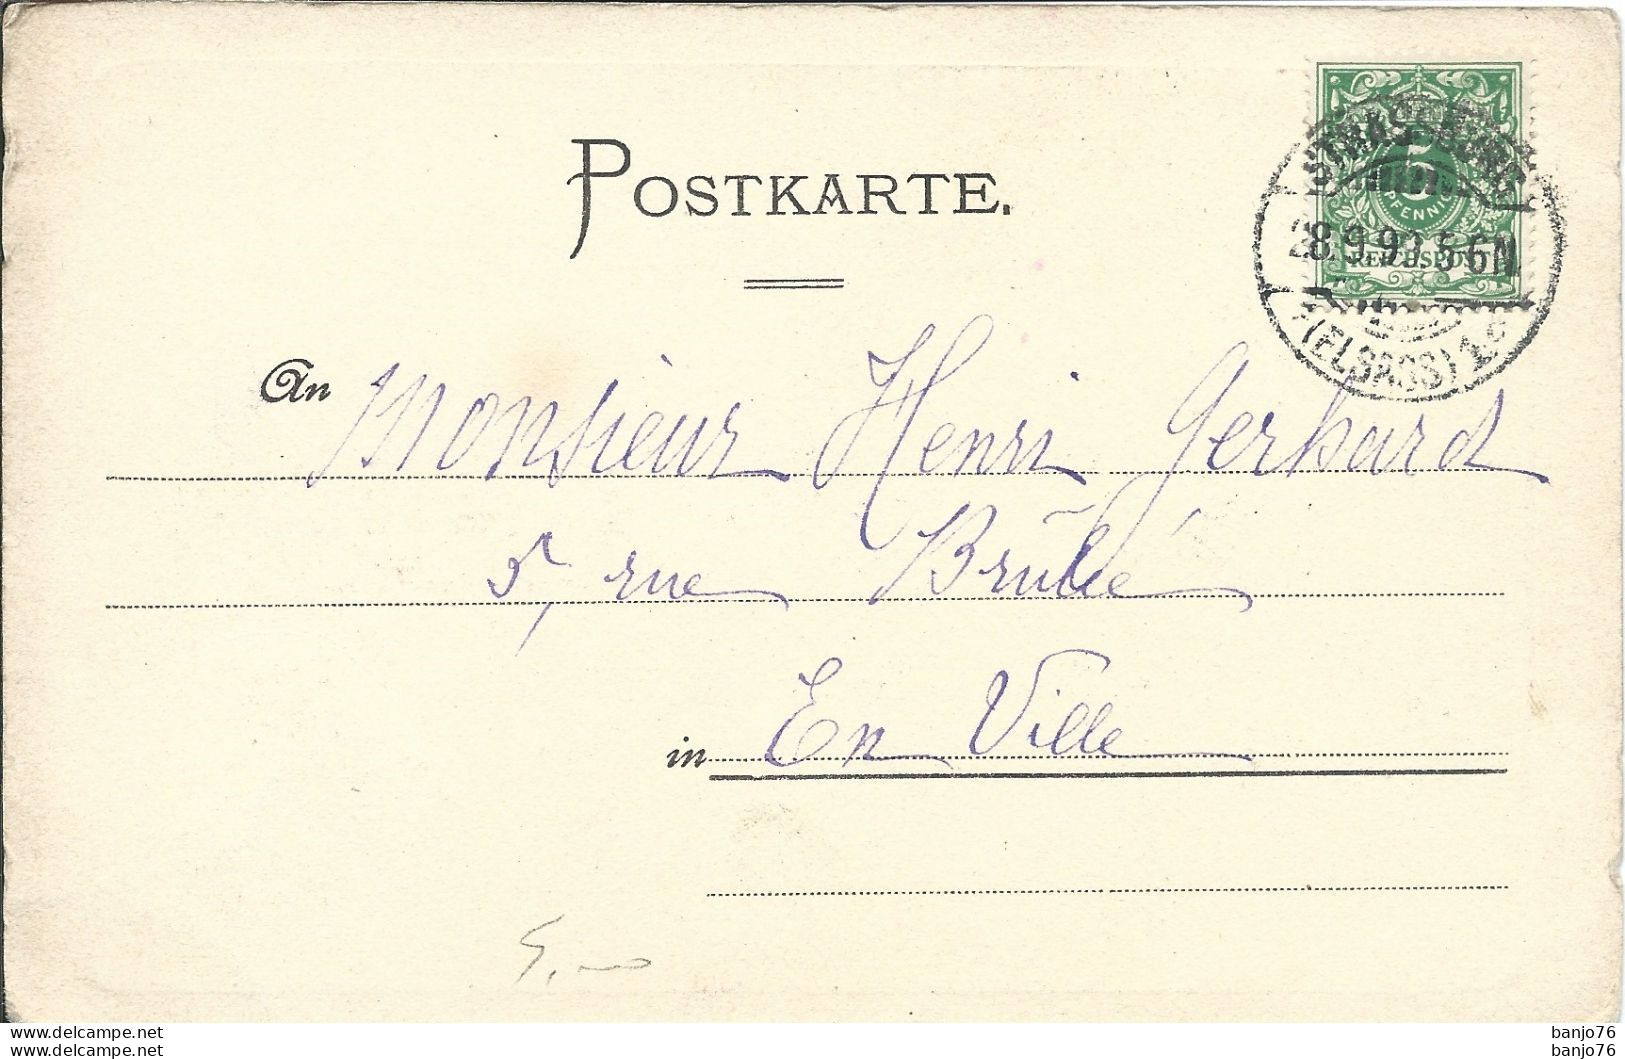 POSTKARTE.
5
PFENNIG
REICHSPOST
STRASSBURG
28.9.99.5-6N
(ELSASS) 1.
An Monsieur Henri Gerhard
5, rue Brûlée
in En Ville
5.—
www.delcampe.net banjo76
www.delcampe.net banjo76